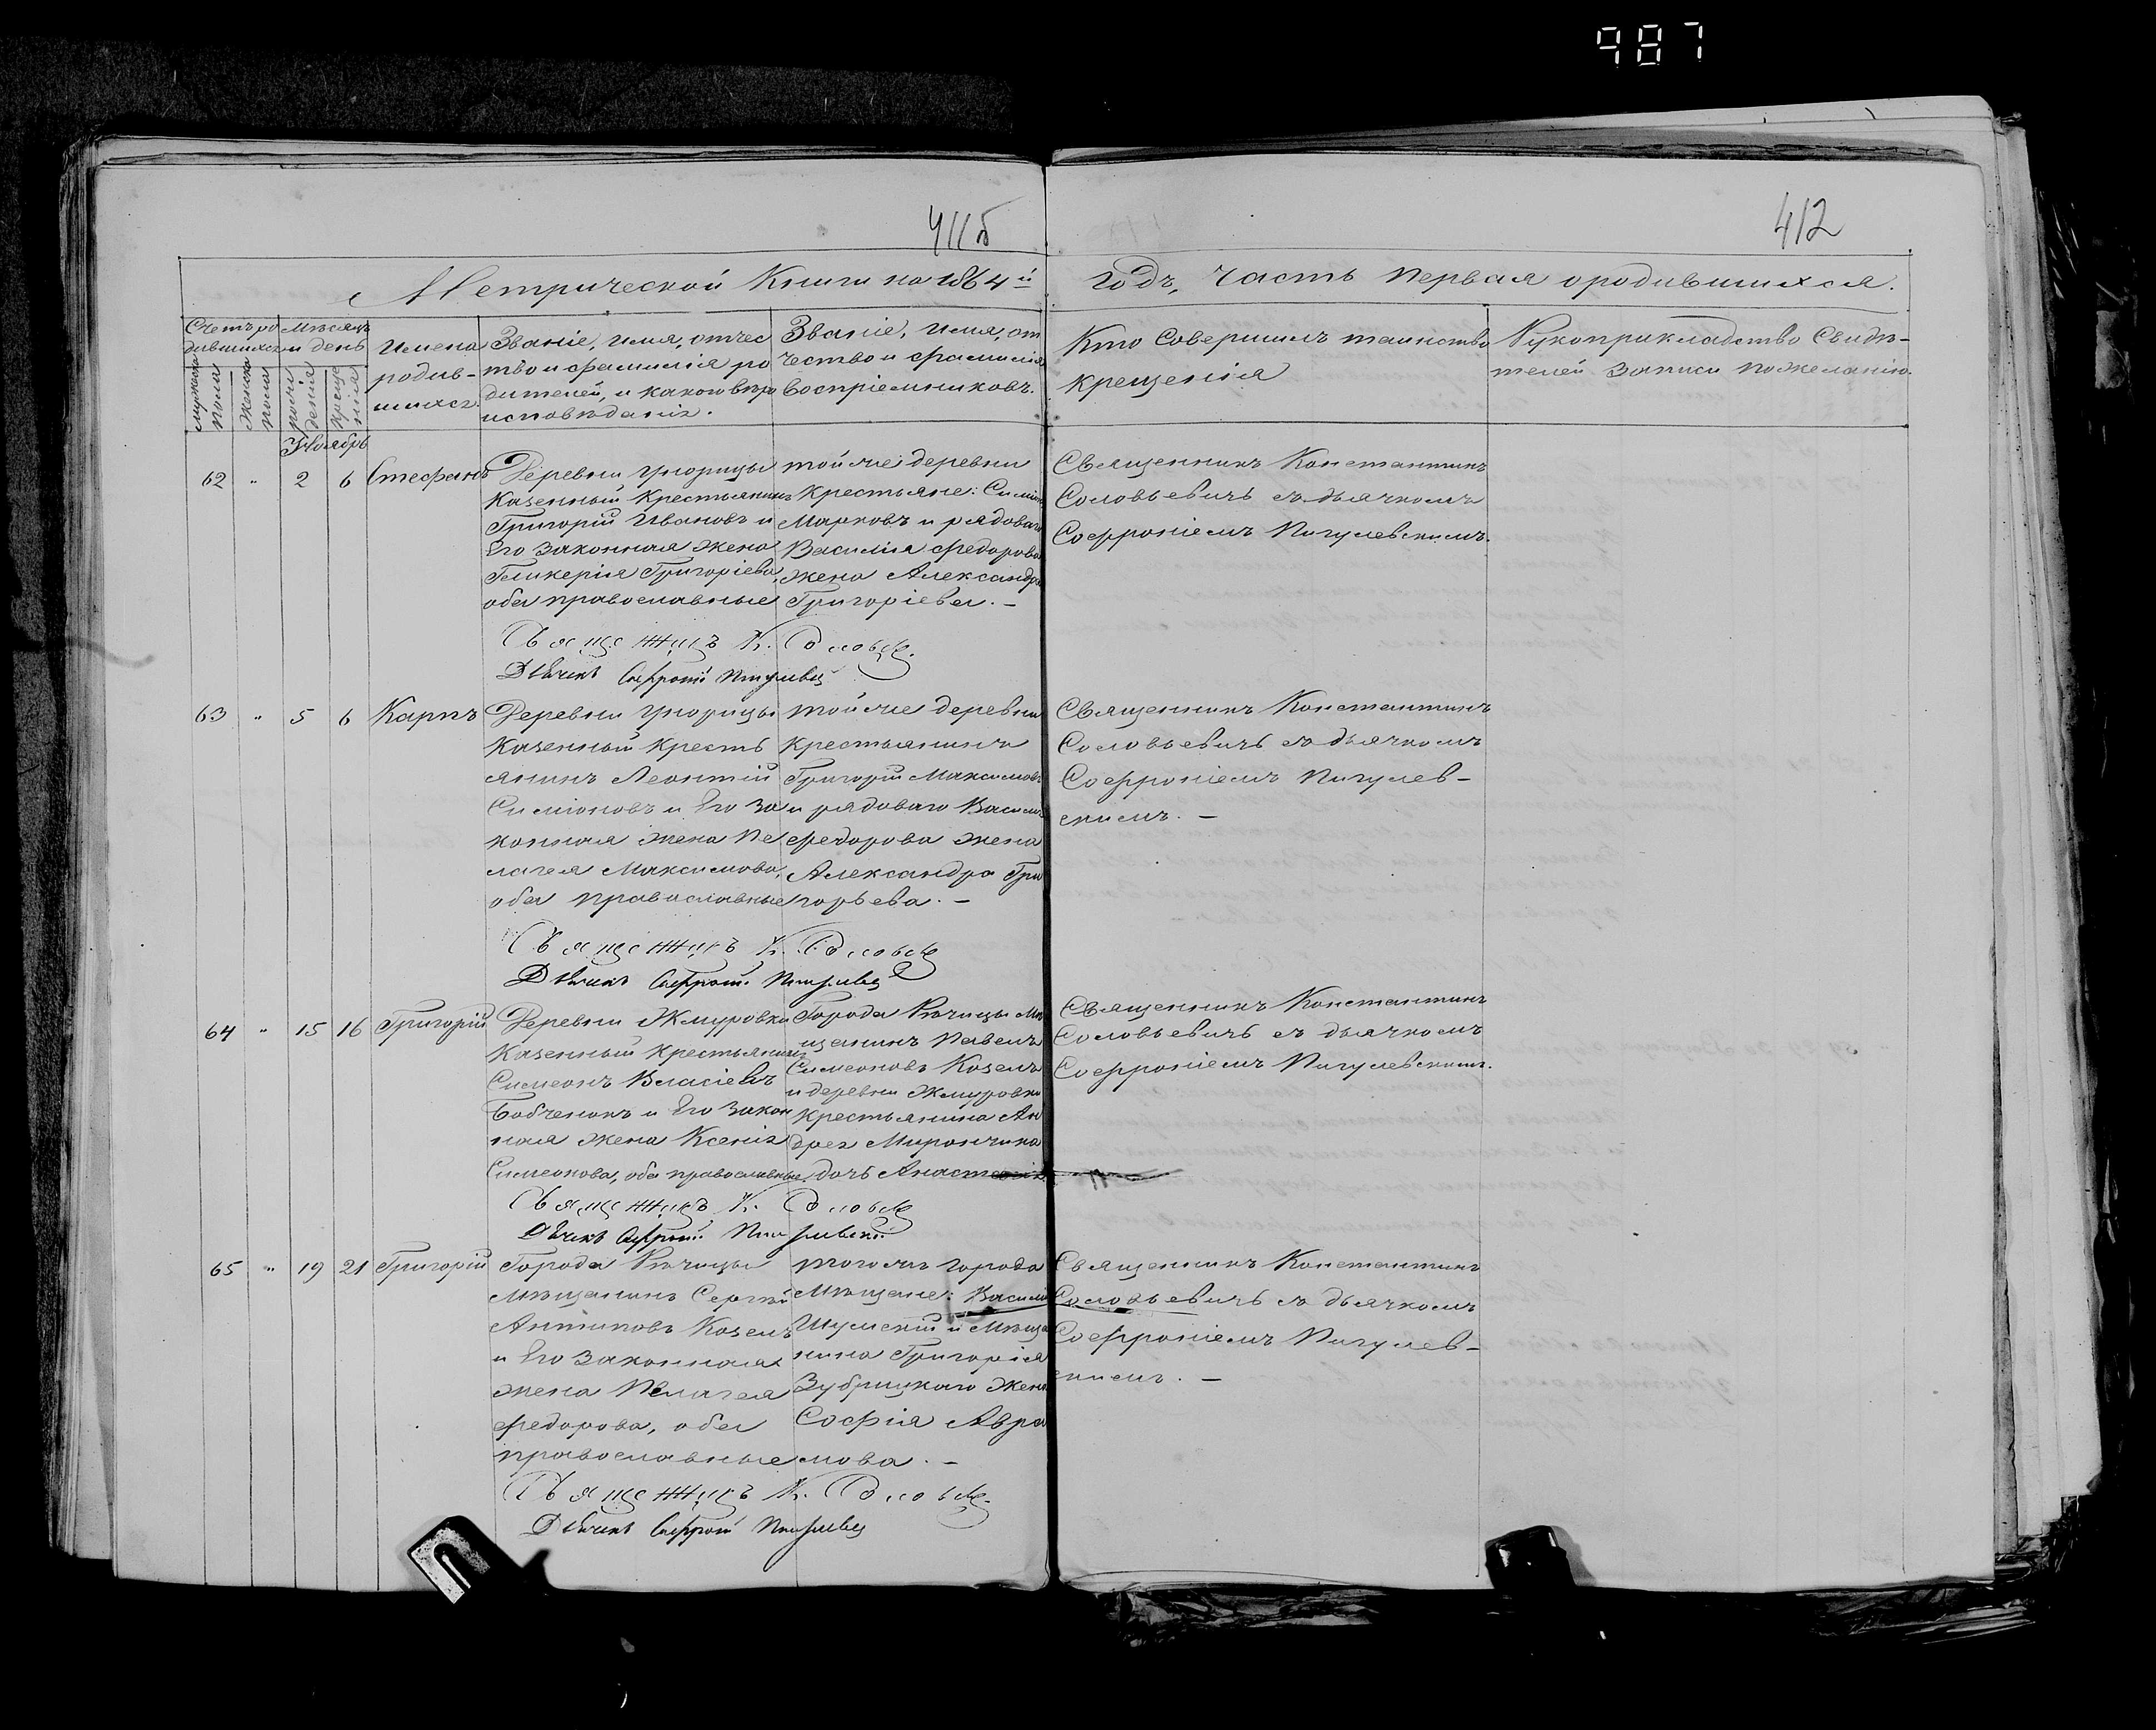 987
411б
412
Метрической Книги на 1864й
годъ, Часть первая о родившихся.
Счетъ ро
дившихся
Мѣсяцъ
и день
мужеска
пола
женска
пола
рож
денія
креще
нія
Имена
родив-
шихся.
Званіе, имя, отчес
тво и фамилія ро
дителей, и какого вѣро
исповѣданія.
Званіе, имя, от
чество и фамилія
воспріемниковъ.
Кто совершилъ таинство
крещенія
Рукоприкладство Свидѣ-
телей записи по желанію.
Ноябрь
62 " 2 6 Стефанъ
Деревни Унорицы
Казенный Крестьянинъ
Григорій Ивановъ и
Его законная жена
Гликерія Григоріева,
оба православные
той же деревни
Крестьяне: Симіонъ
Марковъ и рядоваго
Василія Федорова
жена Александра
Григоріева. –
Священникъ Константинъ
Соловьевичъ съ дьячкомъ
Софроніемъ Пигулевскимъ.
Священникъ К. Соловьев
Дьячекъ Софроній Пигулевс
63 " 5 6 Карпъ
Деревни Унорицы
Казенный Кресть
янинъ Леонтій
Симіоновъ и Его за
конная жена Пе
лагея Максимова,
оба православные
той же деревни
Крестьянинъ
Григорій Максимовъ
и рядоваго Василія
Федорова жена
Александра Гри
горьева. –
Священникъ Константинъ
Соловьевичъ съ дьячкомъ
Софроніемъ Пигулев-
скимъ. –
Священникъ К. Соловьев
Дьячекъ Софроній Пигулевс
64 " 15 16 Григорій
Деревни Жмуровки
Казенный Крестьянинъ
Симеонъ Власіевъ
Бобченокъ и Его закон
ная жена Ксенія
Симеонова, оба православные.
Города Рѣчицы Мѣ
щанинъ Павелъ
Симеоновъ Козелъ
и деревни Жмуровки
Крестьянина Ан
дрея Мирончика
дочь Анастасія
Священникъ Константинъ
Соловьевичъ съ дьячкомъ
Софроніемъ Пигулевскимъ.
Священникъ К. Соловьев
Дьячекъ Софроній Пигулевскій
65 " 19 21 Григорій
Города Рѣчицы
Мѣщанинъ Сергѣй
Антиповъ Козелъ
и Его законная
жена Пелагея
Федорова, оба
православные
того же города
Мѣщане: Василій
Шумскій и Мѣща
нина Григорія
Зубрицкаго жена
Софія Авра
мова. –
Священникъ Константинъ
Соловьевичъ съ дьячкомъ
Софроніемъ Пигулев-
скимъ. –
Священникъ К. Соловьев
Дьячекъ Софроній Пигулевс